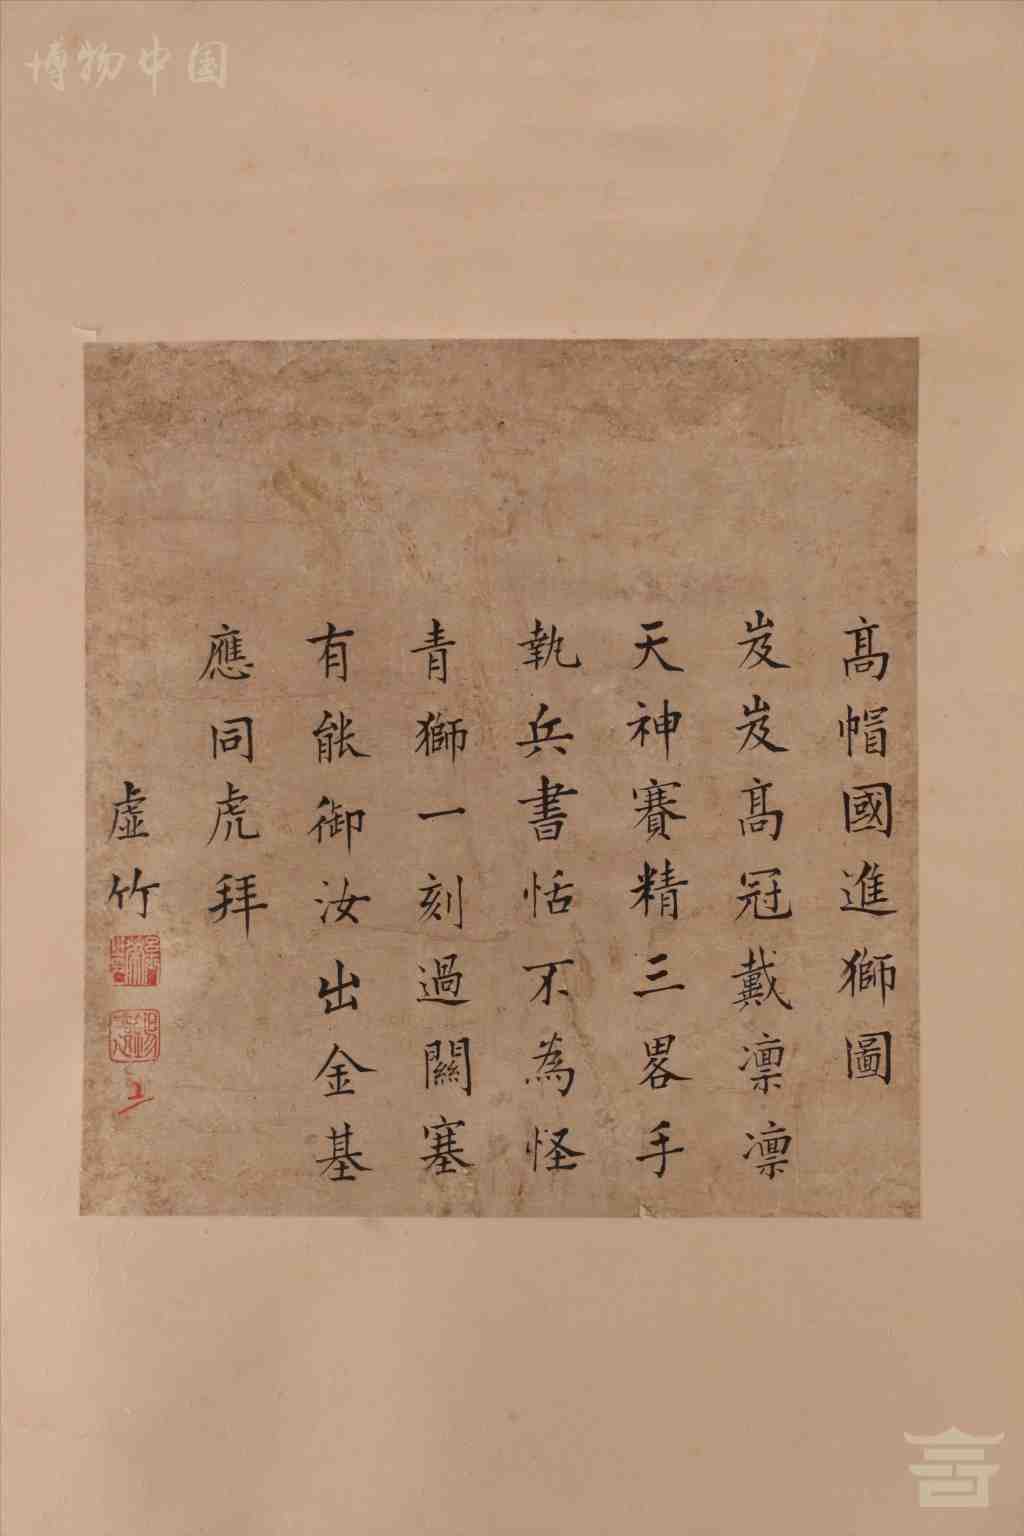 博物中国
高帽國進獅圖
岌岌高冠戴凛凛
天神賽精三畧手
執兵書恬不為怪
青獅一刻過關塞
有能御汝出金基
應同虎拜
虛竹